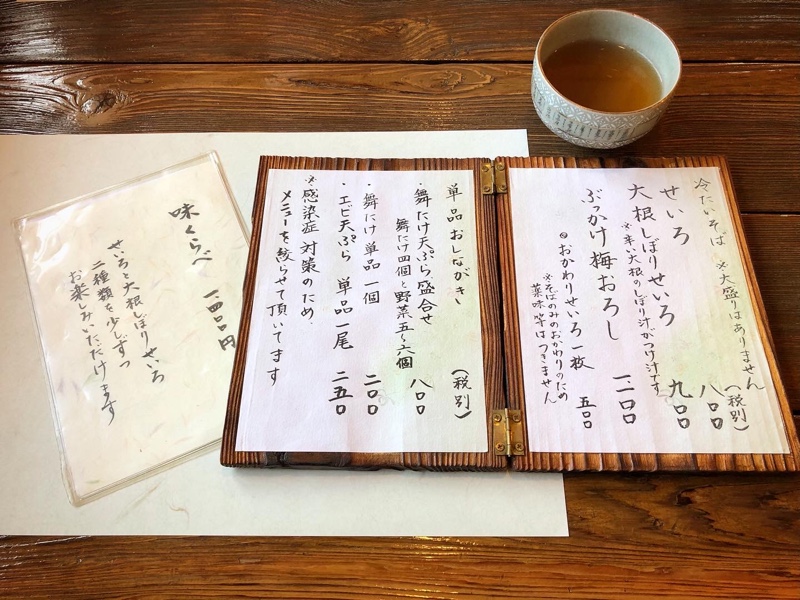 冷たいそば ※大盛りはありません
(税別)
せいろ 八〇〇
大根しぼりせいろ 九〇〇
※辛い大根のしぼり汁がつけ汁です
ぶっかけ梅おろし 一二〇〇
◎おかわりせいろ一枚 五〇〇
※そばのみのおかわりのため
薬味等はつきません
単品おしながき
(税別)
・舞たけ天ぷら盛合せ 八〇〇
舞たけ四個と野菜五〜六個
・舞たけ単品一個 二〇〇
・エビ天ぷら 単品一尾 二五〇
※感染症対策のため、
メニューを絞らせて頂いてます
味くらべ 一四〇〇円
せいろと大根しぼりせいろ
二種類を少しずつ
お楽しみいただけます